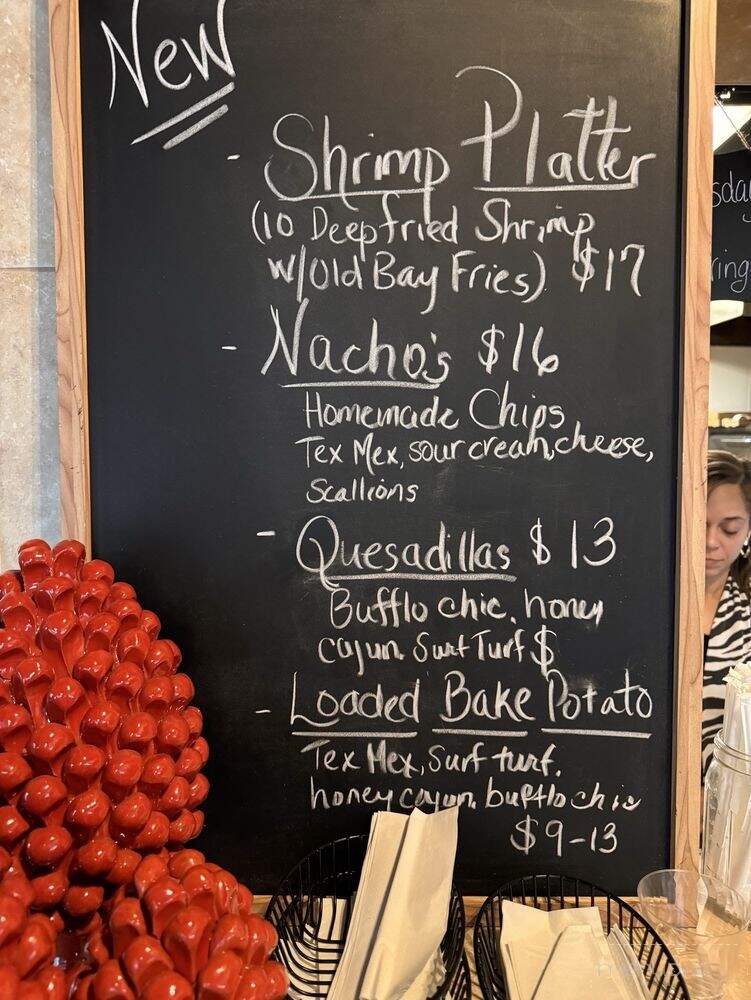 New
- Shrimp Platter
(10 Deep fried Shrimp
w/Old Bay Fries) $17
- Nacho's $16
Homemade Chips
Tex Mex, sour cream, cheese,
Scallions
- Quesadillas $13
Bufflo chic. honey
cajun. Surf Turf $
- Loaded Bake Potato
Tex Mex, Surf turf.
honey cajun. bufflo chic
$9-13